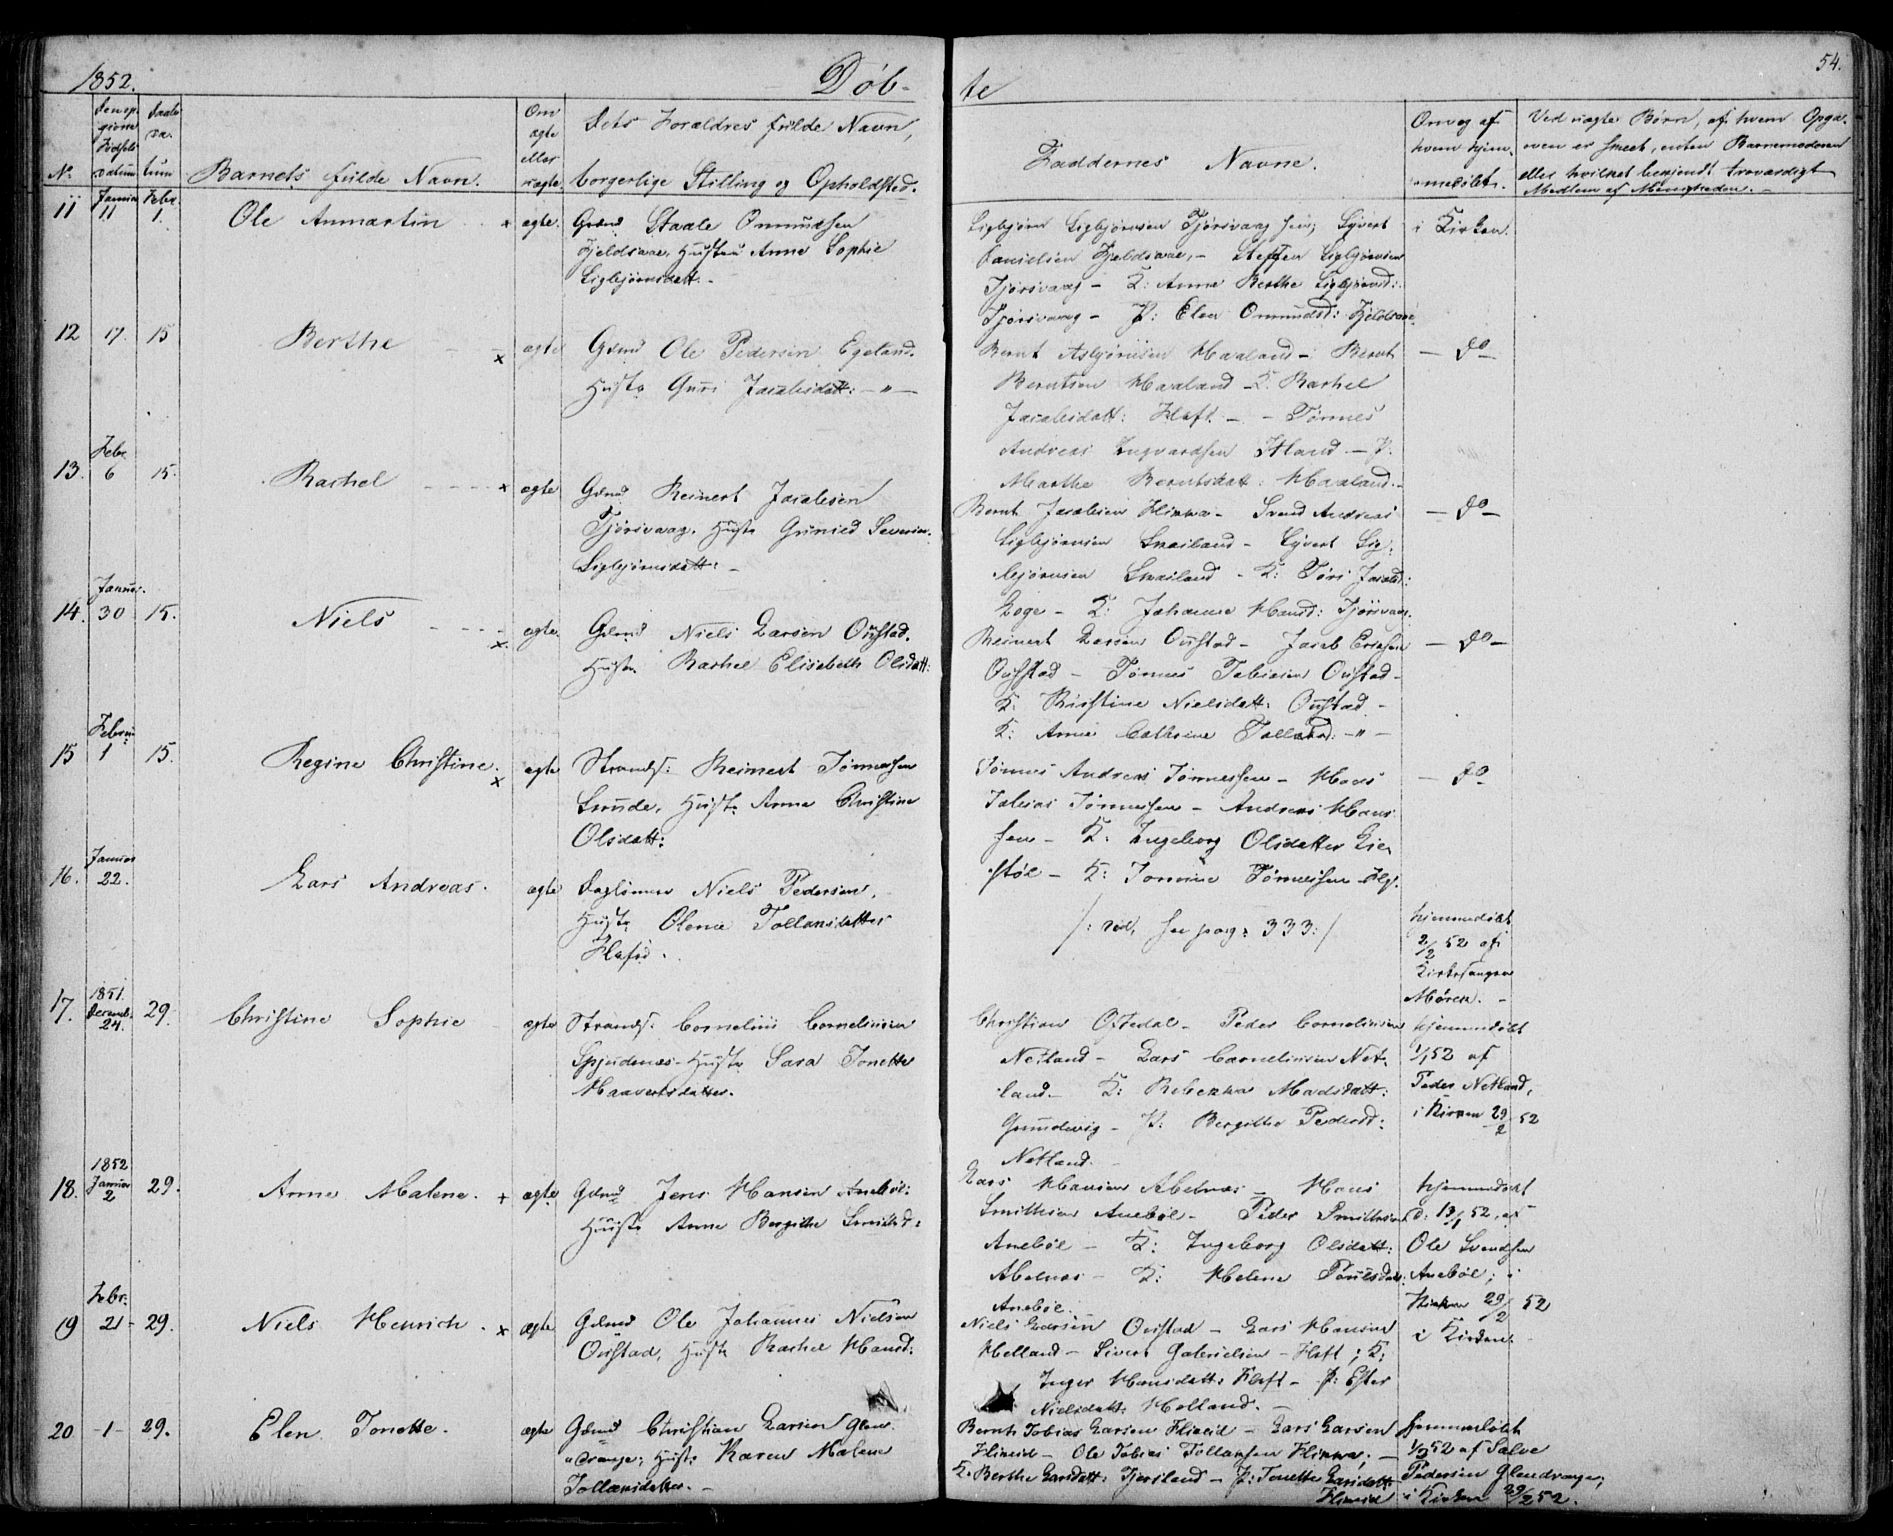 1852.
Døb-
te
54.
No
Barnets fulde Navn.
Om ægte eller uægte.
Dets Forældres fulde Navn,
borgerlige Stilling og Opholdsted.
Faddernes Navne.
Om og af hvem hjemmedøbt.
Ved uægte Børn, af hvem Opga-
ven er skeet, enten Barnemoderen
eller hvilket bekjendt troværdigt
Medlem af Menigheden.
11 Januar 11 Febr. 1.
Ole Anmartin x ægte.
Gdmd Staale Ommundsen
Fjeldsaae, Hustru Anne Sophie
Sigbjørnsdatt.
Sigbjørn Sigbjørnsen Tjørsvaag sen; Syvert
Danielsen Fjeldsaae, - Steffen Sigbjørnsen
Tjørsvaag - K: Anne Berthe Sigbjørnsd:
Tjørsvaag - P: Elen Ommundsd: Fjeldsaae
i Kirken.
12 17. 15
Berthe x ægte
Gdmd Ole Pedersen Egeland.
Hustr. Guri Jacobsdatt: - " -
Bernt Asbjørnsen Haaland - Bernt
Berntsen Haaland - K. Rachel
Jacobsdatt: Flaft. - - Tønnes
Andreas Ingvardsen - P.
Marthe Berntsdatt: Haaland. -
- Do -
13. Febr. 6 15.
Rachel x ægte
Gdmd Reinert Jacobsen
Tjørsvaag. Hustr. Gunild Severine
Sigbjørnsdatt: -
Bernt Jacobsen Flikka - Svend Andreas
Sigbjørnsen - Syvert Sig-
bjørnsen - K: Tøri Jacobsd:
Loge - K: Johanne Hansd: Tjörsvaag.
- Do -
14. Januar. 30 15.
Niels x ægte.
Gdmd Niels Larsen Oustad.
Hustr. Rachel Elisabeth Olsdatt:
Reinert Larsen Oustad - Jacob Ericksen
Oustad - Tønnes Tobiasen Oustad -
K. Kristine Nielsdatt: Oustad -
K: Anne Cathrine - " -
- Do -
15 Februar 1 15.
Regine Christine. x ægte
Strands: Reinert Tønnessen
Hustr. Anne Christine
Olsdatt:
Tønnes Andreas Tønnessen - Hans
Tobias Tønnessen - Andreas Han-
sen - K: Ingeborg Olsdatter Lie-
støl - K: Tomine Tønnessen
- Do -
16. Januar 22.
Lars Andreas. ægte
Daglönner Niels Pedersen,
Hustr. Olene Tollansdatter
/: vid, see pag: 333:/
hjemmedøbt
2/2 52 af
Kirkesanger
17. 1851. Decemb. 24. 29.
Christine Sophie ægte
Strands: Cornelius Corneliusen
Hustr Sara Tonette
Haavertsdatter.
Christian Oftedal - Peder Corneliusen
Netland - Lars Corneliusen Net-
land - K: Rebekka Madsdatt:
Grundevig - P: Bergithe Pedersd:
Netland.
hjemmedøbt
1/1 52 af
Peder Netland,
i Kirken 29/2 52
18. 1852 Januar 2 29.
Anne Malene. x ægte
Gdmd Jens Hansen Anebøl:
Hustr Anne Bergithe
Lars Hansen Abelnæs - Hans
Smithsen Anebøl - Peder Smithsen
Anebøl - K: Ingeborg Olsdatt:
Abelnæs - K: Helene Poulsdatt:
Anebøl.
hjemmedøbt
d: 13/1 52, af
Ole Svendsen
Anebøl; i
Kirken 29/2 52
19 Febr. 21 29.
Niels Henrich. x ægte
Gdmd Ole Johannes Nielsen
Oustad, Hustr Rachel Hansd:
Niels Larsen Oustad - Lars Hansen
Helland - Sivert Gabrielsen - Flaft; K:
Inger Hansdatt: Flaft - P: Ester
Nielsdatt: Helland. -
i Kirken.
20 -1- 29.
Elen Tonette. ægte
Gdmd Christian Larsen Glen-
drange; Hustr. Karen Malene
Tollaksdatter. -
Bernt Tobias Larsen - Lars Larsen
- Ole Tobias Tollaksen Flikka; -
K: Berthe Larsdatt: - P: Tonette Larsdatt:
hjemmedøbt
1/2 52 af Salve
Pedersen Glendrange;
i Kirken 29/2 52.